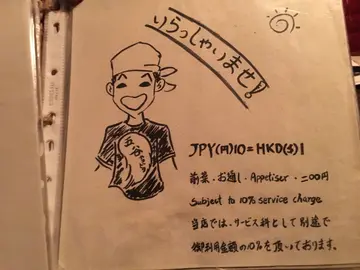 いらっしゃいませ!
五の谷
JPY(円)10 = HKD($)1
前菜・お通し・Appetiser・二00円
Subject to 10% service charge
当店では、サービス料として別途で
御利用金額の10%を頂いております。